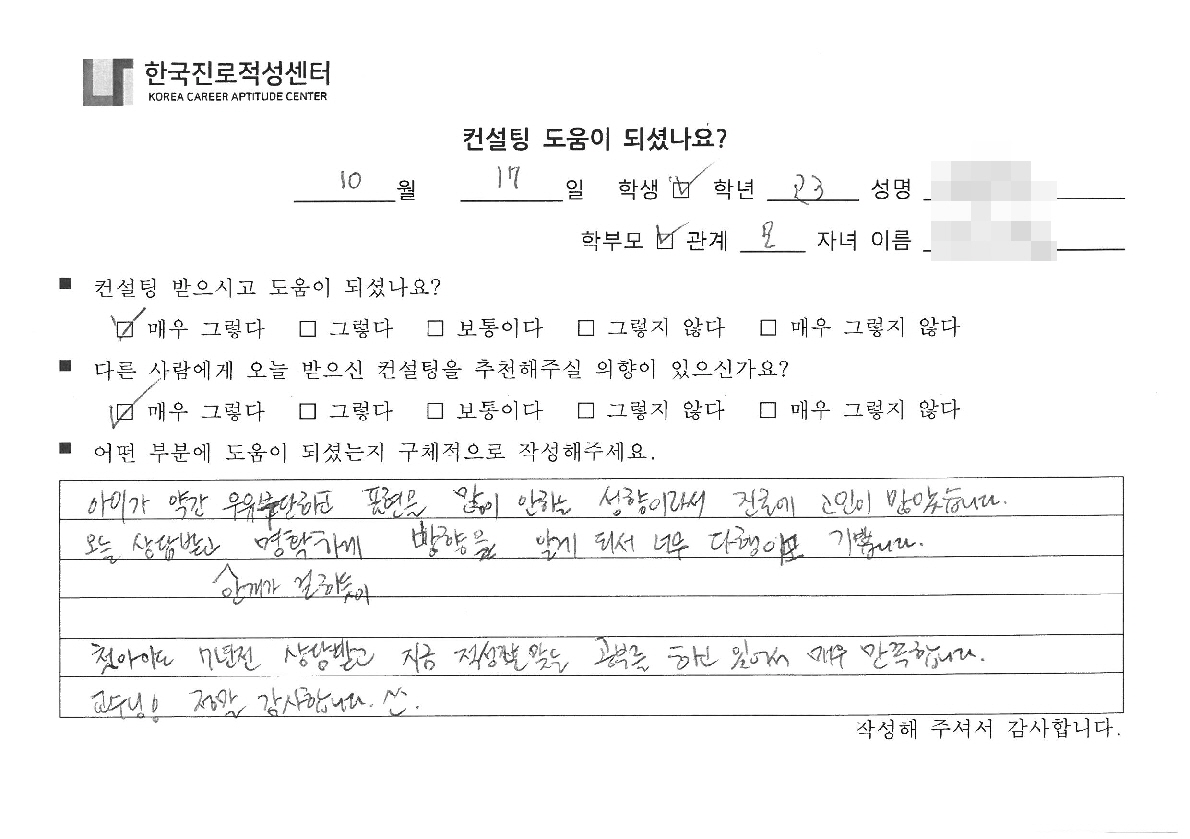 한국진로적성센터
KOREA CAREER APTITUDE CENTER
컨설팅 도움이 되셨나요?
10 월 17 일 학생 ☑ 학년 23 성명
학부모 ☑ 관계 모 자녀 이름
■ 컨설팅 받으시고 도움이 되셨나요?
☑ 매우 그렇다 □ 그렇다 □ 보통이다 □ 그렇지 않다 □ 매우 그렇지 않다
■ 다른 사람에게 오늘 받으신 컨설팅을 추천해주실 의향이 있으신가요?
☑ 매우 그렇다 □ 그렇다 □ 보통이다 □ 그렇지 않다 □ 매우 그렇지 않다
■ 어떤 부분에 도움이 되셨는지 구체적으로 작성해주세요.
아이가 약간 우유부단하고 표현을 많이 안하는 성향이라서 진로에 고민이 많았습니다.
오늘 상담받고 명확하게 방향을 알게 되서 너무 다행이고 기쁩니다.
안개가 걷히듯이
첫아이도 7년전 상담받고 지금 적성잘맞는 공부를 하고 있어서 매우 만족합니다.
교수님! 정말 감사합니다.
작성해 주셔서 감사합니다.